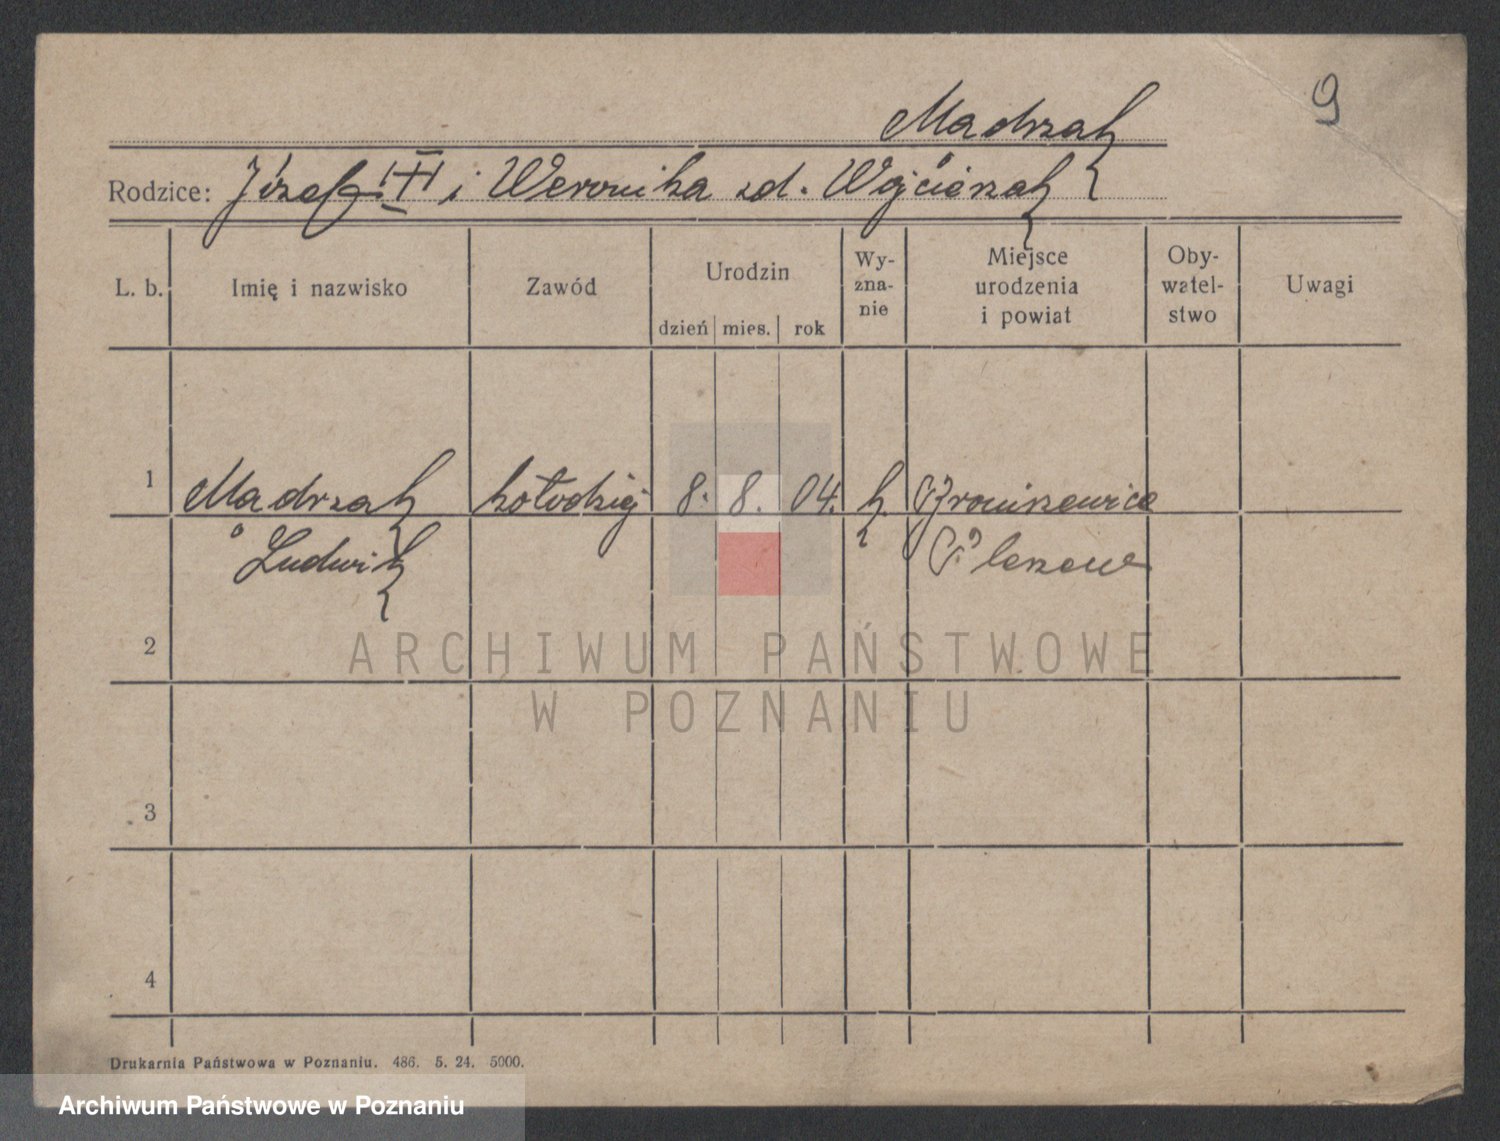 9
Madrzak
Rodzice: Józef i Weronika zd. Wojcieszak
L. b. Imię i nazwisko Zawód Urodzin dzień mies. rok Wy-zna-nie Miejsce urodzenia i powiat Oby-watel-stwo Uwagi
1 Madrzak kołodziej 8. 8. 04. k.
Ludwik
2
ARCHIWUM PAŃSTWOWE
W POZNANIU
3
4
Drukarnia Państwowa w Poznaniu. 486. 5. 24. 5000.
Archiwum Państwowe w Poznaniu